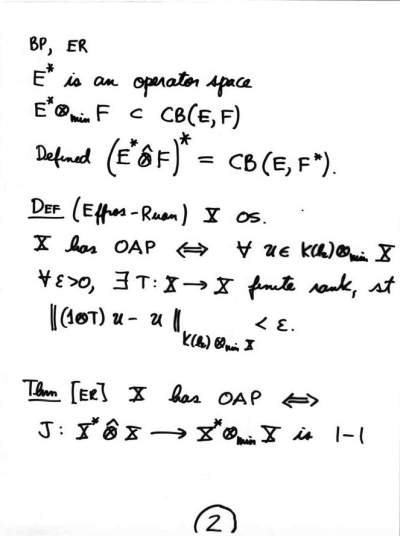 BP, ER
E* is an operator space
E*⊗min F ⊂ CB(E,F)
Defined (E*⊗̂F)* = CB(E,F*).
DEF (Effros-Ruan) X OS.
X has OAP ⇔ ∀ u∈ K(ℓ₂)⊗min X
∀ε>0, ∃T: X→X finite rank, st
‖(1⊗T)u - u‖K(ℓ₂)⊗min X < ε.
Thm [ER] X has OAP ⇔
J: X*⊗̂X → X*⊗min X is 1-1
2